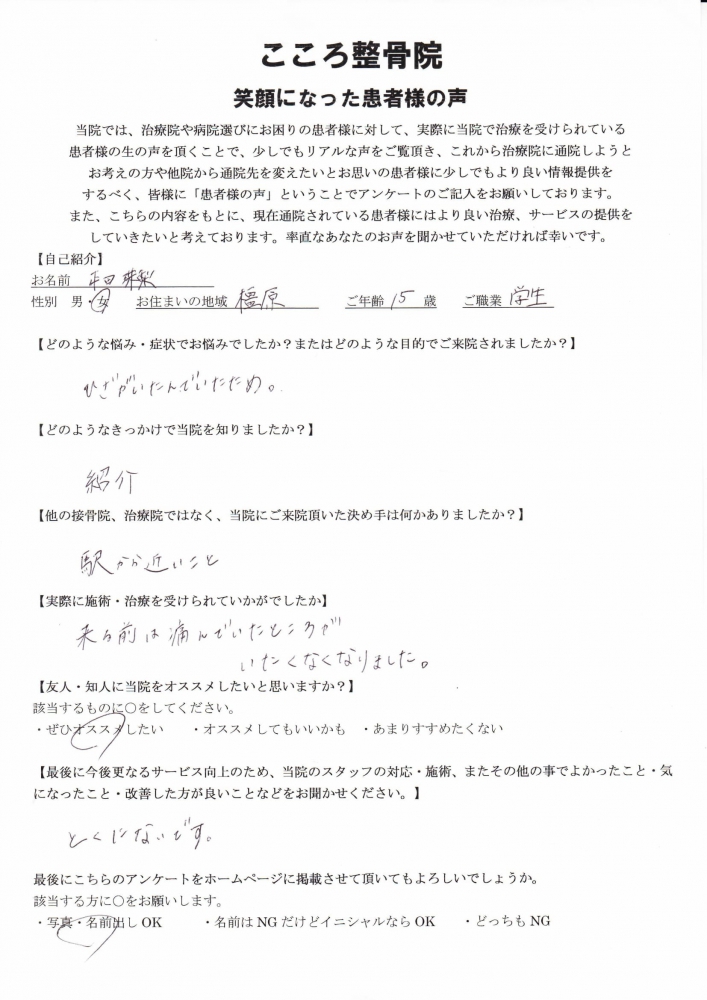 こころ整骨院
笑顔になった患者様の声
当院では、治療院や病院選びにお困りの患者様に対して、実際に当院で治療を受けられている
患者様の生の声を頂くことで、少しでもリアルな声をご覧頂き、これから治療院に通院しようと
お考えの方や他院から通院先を変えたいとお思いの患者様に少しでもより良い情報提供を
するべく、皆様に「患者様の声」ということでアンケートのご記入をお願いしております。
また、こちらの内容をもとに、現在通院されている患者様にはより良い治療、サービスの提供を
していきたいと考えております。率直なあなたのお声を聞かせていただければ幸いです。
【自己紹介】
お名前
性別 男・女 お住まいの地域 橿原 ご年齢 15 歳 ご職業 学生
【どのような悩み・症状でお悩みでしたか？またはどのような目的でご来院されましたか？】
ひざがいたんでいたため。
【どのようなきっかけで当院を知りましたか？】
紹介
【他の接骨院、治療院ではなく、当院にご来院頂いた決め手は何かありましたか？】
駅から近いこと
【実際に施術・治療を受けられていかがでしたか】
来る前は痛んでいたところが
いたくなくなりました。
【友人・知人に当院をオススメしたいと思いますか？】
該当するものに○をしてください。
・ぜひオススメしたい ・オススメしてもいいかも ・あまりすすめたくない
【最後に今後更なるサービス向上のため、当院のスタッフの対応・施術、またその他の事でよかったこと・気
になったこと・改善した方が良いことなどをお聞かせください。】
とくにないです。
最後にこちらのアンケートをホームページに掲載させて頂いてもよろしいでしょうか。
該当する方に○をお願いします。
・写真・名前出し OK ・名前は NG だけどイニシャルなら OK ・どっちも NG